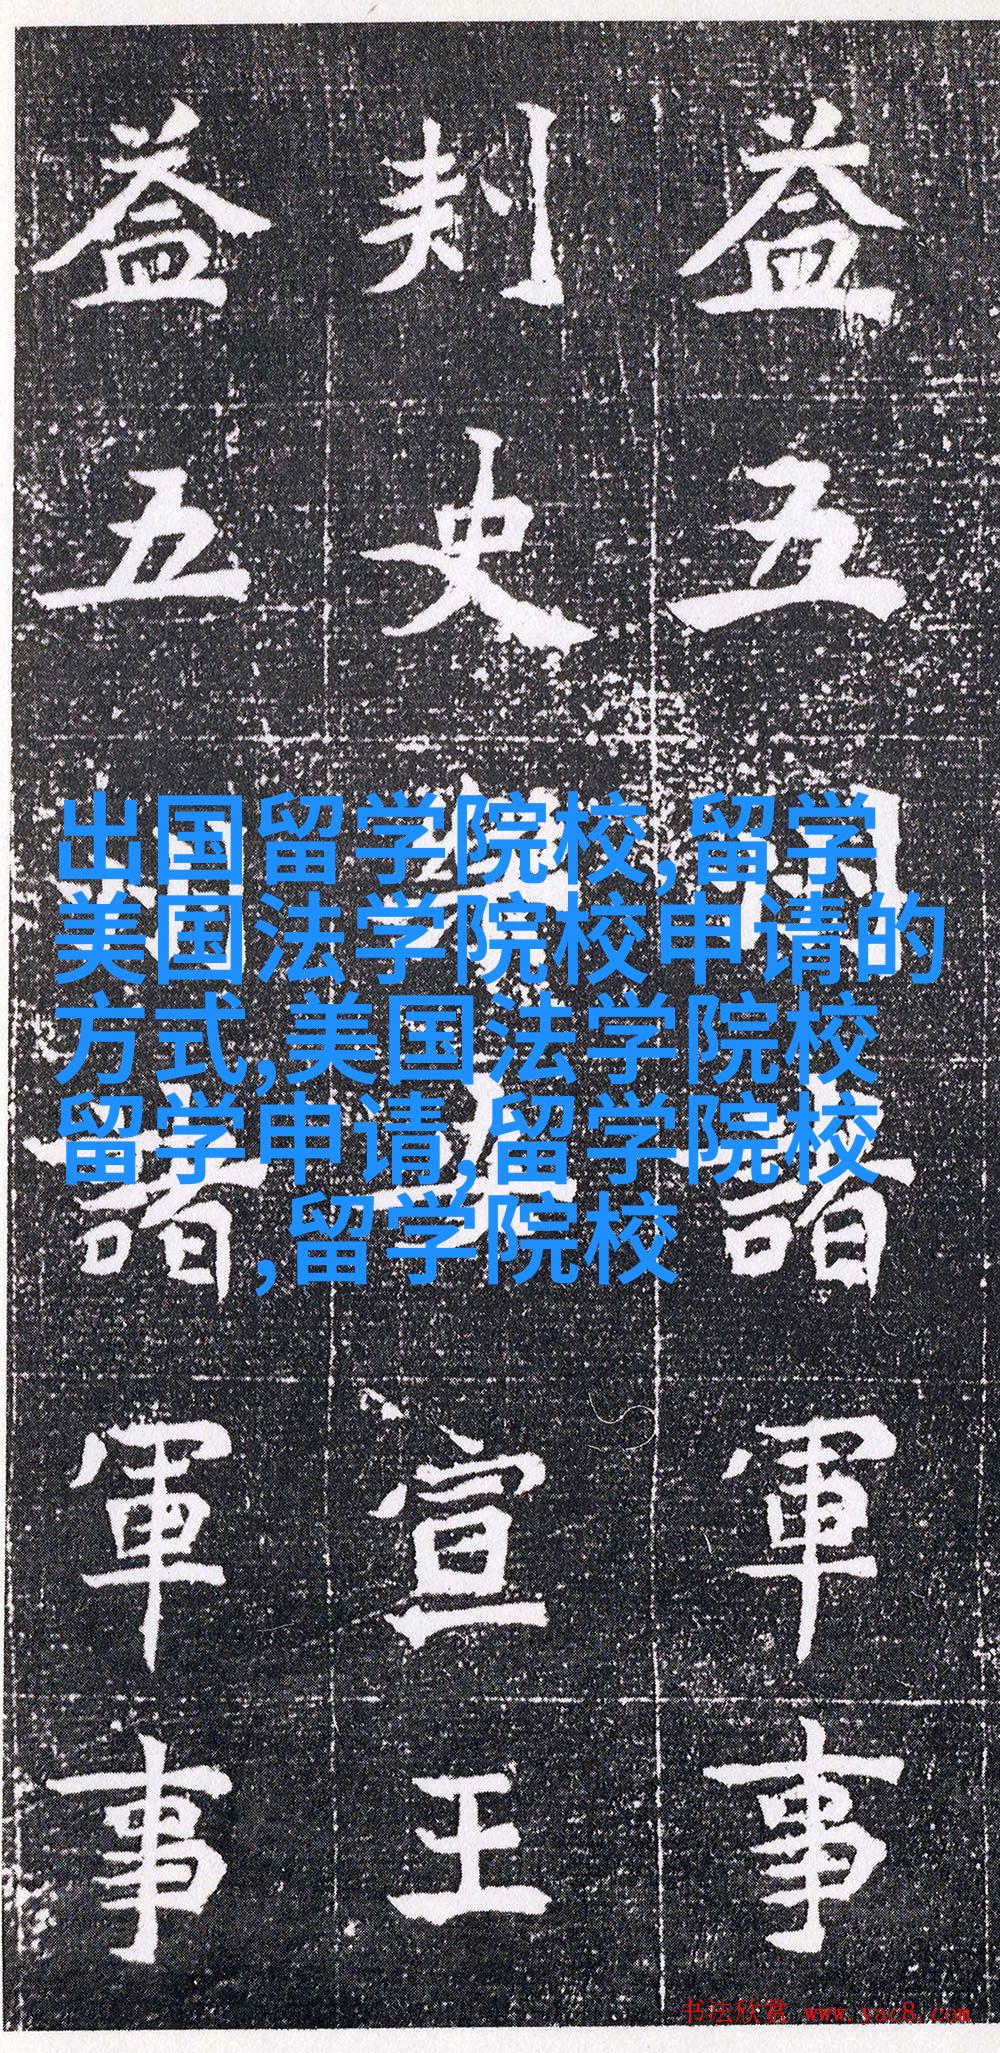 益五州諸軍事
刺史宣王
益五諸軍事
出国留学院校,留学
美国法学院校申请的
方式,美国法学院校
留学申请,留学院校
,留学院校
书法欣赏 www.yac8.com